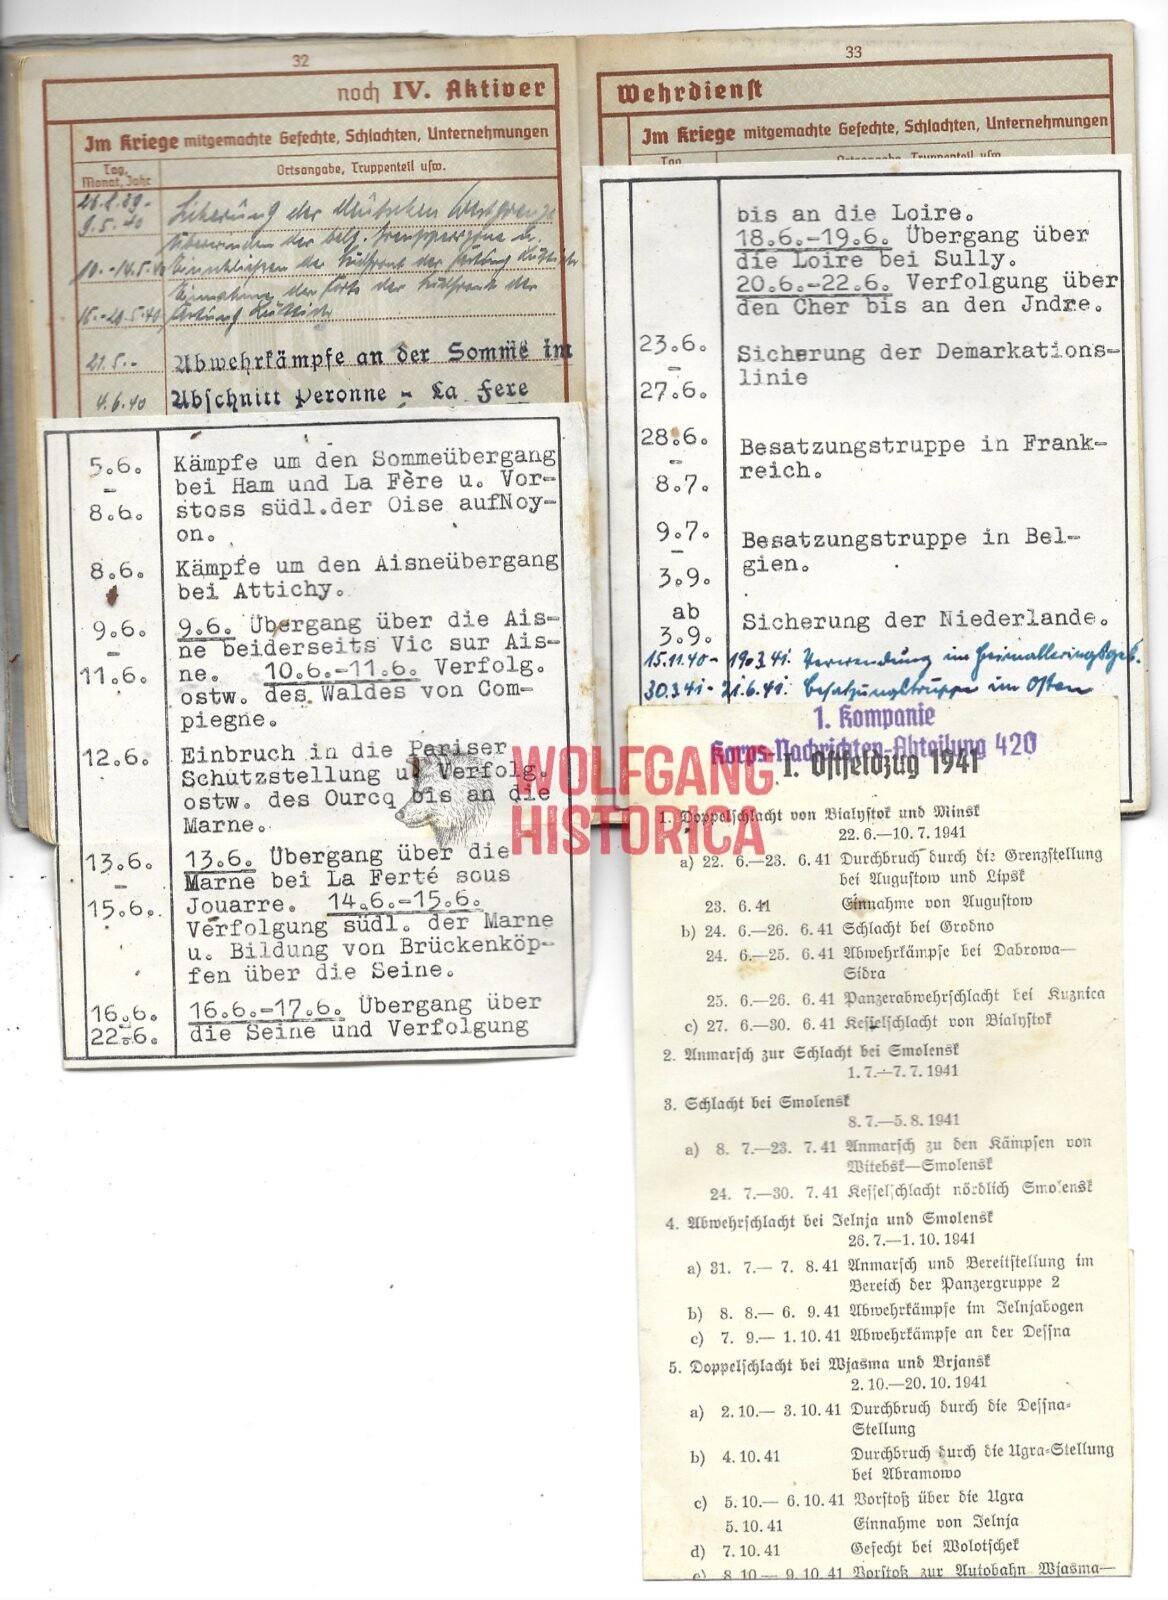 32
noch IV. Aktiver
Im Kriege mitgemachte Gefechte, Schlachten, Unternehmungen
Tag, Monat, Jahr
Ortsangabe, Truppenteil usw.
26.8.39-
9.5.40
Sicherung der deutschen Westgrenze
Überwinden der belg. Grenzsperrzone u.
10.-14.5.40 Einschließen der Südfront der Festung Lüttich
Einnahme der Forts der Südfront der
15.-20.5.40 Festung Lüttich
21.5.- Abwehrkämpfe an der Somme im
4.6.40 Abschnitt Peronne - La Fere
5.6. - 8.6.
Kämpfe um den Sommeübergang
bei Ham und La Fère u. Vor-
stoss südl.der Oise aufNoy-
on.
8.6.
Kämpfe um den Aisneübergang
bei Attichy.
9.6. - 11.6.
9.6. Übergang über die Ais-
ne beiderseits Vic sur Ais-
ne. 10.6.-11.6. Verfolg.
ostw. des Waldes von Com-
piegne.
12.6.
Einbruch in die Pariser
Schutzstellung u. Verfolg.
ostw. des Ourcq bis an die
Marne.
13.6. - 15.6.
13.6. Übergang über die
Marne bei La Ferté sous
Jouarre. 14.6.-15.6.
Verfolgung südl. der Marne
u. Bildung von Brückenköp-
fen über die Seine.
16.6. - 22.6.
16.6.-17.6. Übergang über
die Seine und Verfolgung
33
Wehrdienst
Im Kriege mitgemachte Gefechte, Schlachten, Unternehmungen
Tag
Ortsangabe, Truppenteil usw.
bis an die Loire.
18.6.-19.6. Übergang über
die Loire bei Sully.
20.6.-22.6. Verfolgung über
den Cher bis an den Jndre.
23.6. - 27.6.
Sicherung der Demarkations-
linie
28.6. - 8.7.
Besatzungstruppe in Frank-
reich.
9.7. - 3.9.
Besatzungstruppe in Bel-
gien.
ab 3.9.
Sicherung der Niederlande.
15.11.40 - 19.3.41. Verwendung im Heimatkriegsgeb.
30.3.41 - 21.6.41. Besatzungstruppe im Osten
1. Kompanie
Korps-Nachrichten-Abteilung 420
I. Ostfeldzug 1941
1. Doppelschlacht von Bialystok und Minsk
22. 6.—10. 7. 1941
a) 22. 6.—23. 6. 41 Durchbruch durch die Grenzstellung
bei Augustow und Lipsk
23. 6. 41 Einnahme von Augustow
b) 24. 6.—26. 6. 41 Schlacht bei Grodno
24. 6.—25. 6. 41 Abwehrkämpfe bei Dabrowa—
Sidra
25. 6.—26. 6. 41 Panzerabwehrschlacht bei Kuznica
c) 27. 6.—30. 6. 41 Kesselschlacht von Bialystok
2. Anmarsch zur Schlacht bei Smolensk
1. 7.—7. 7. 1941
3. Schlacht bei Smolensk
8. 7.—5. 8. 1941
a) 8. 7.—23. 7. 41 Anmarsch zu den Kämpfen von
Witebsk—Smolensk
24. 7.—30. 7. 41 Kesselschlacht nördlich Smolensk
4. Abwehrschlacht bei Jelnja und Smolensk
26. 7.—1. 10. 1941
a) 31. 7.— 7. 8. 41 Anmarsch und Bereitstellung im
Bereich der Panzergruppe 2
b) 8. 8.— 6. 9. 41 Abwehrkämpfe im Jelnjabogen
c) 7. 9.— 1. 10. 41 Abwehrkämpfe an der Dessna
5. Doppelschlacht bei Wjasma und Brjansk
2. 10.—20. 10. 1941
a) 2. 10.— 3. 10. 41 Durchbruch durch die Dessna-
Stellung
b) 4. 10. 41 Durchbruch durch die Ugra-Stellung
bei Abramowo
c) 5. 10.— 6. 10. 41 Vorstoß über die Ugra
5. 10. 41 Einnahme von Jelnja
d) 7. 10. 41 Gefecht bei Wolotschek
e) 8. 10.— 9. 10. 41 Vorstoß zur Autobahn Wjasma—
WOLFGANG
HISTORICA